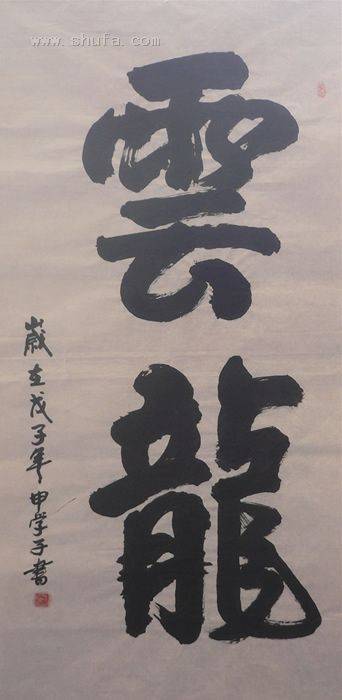 www.shufa.com
雲龍
歲在戊子年申学子書